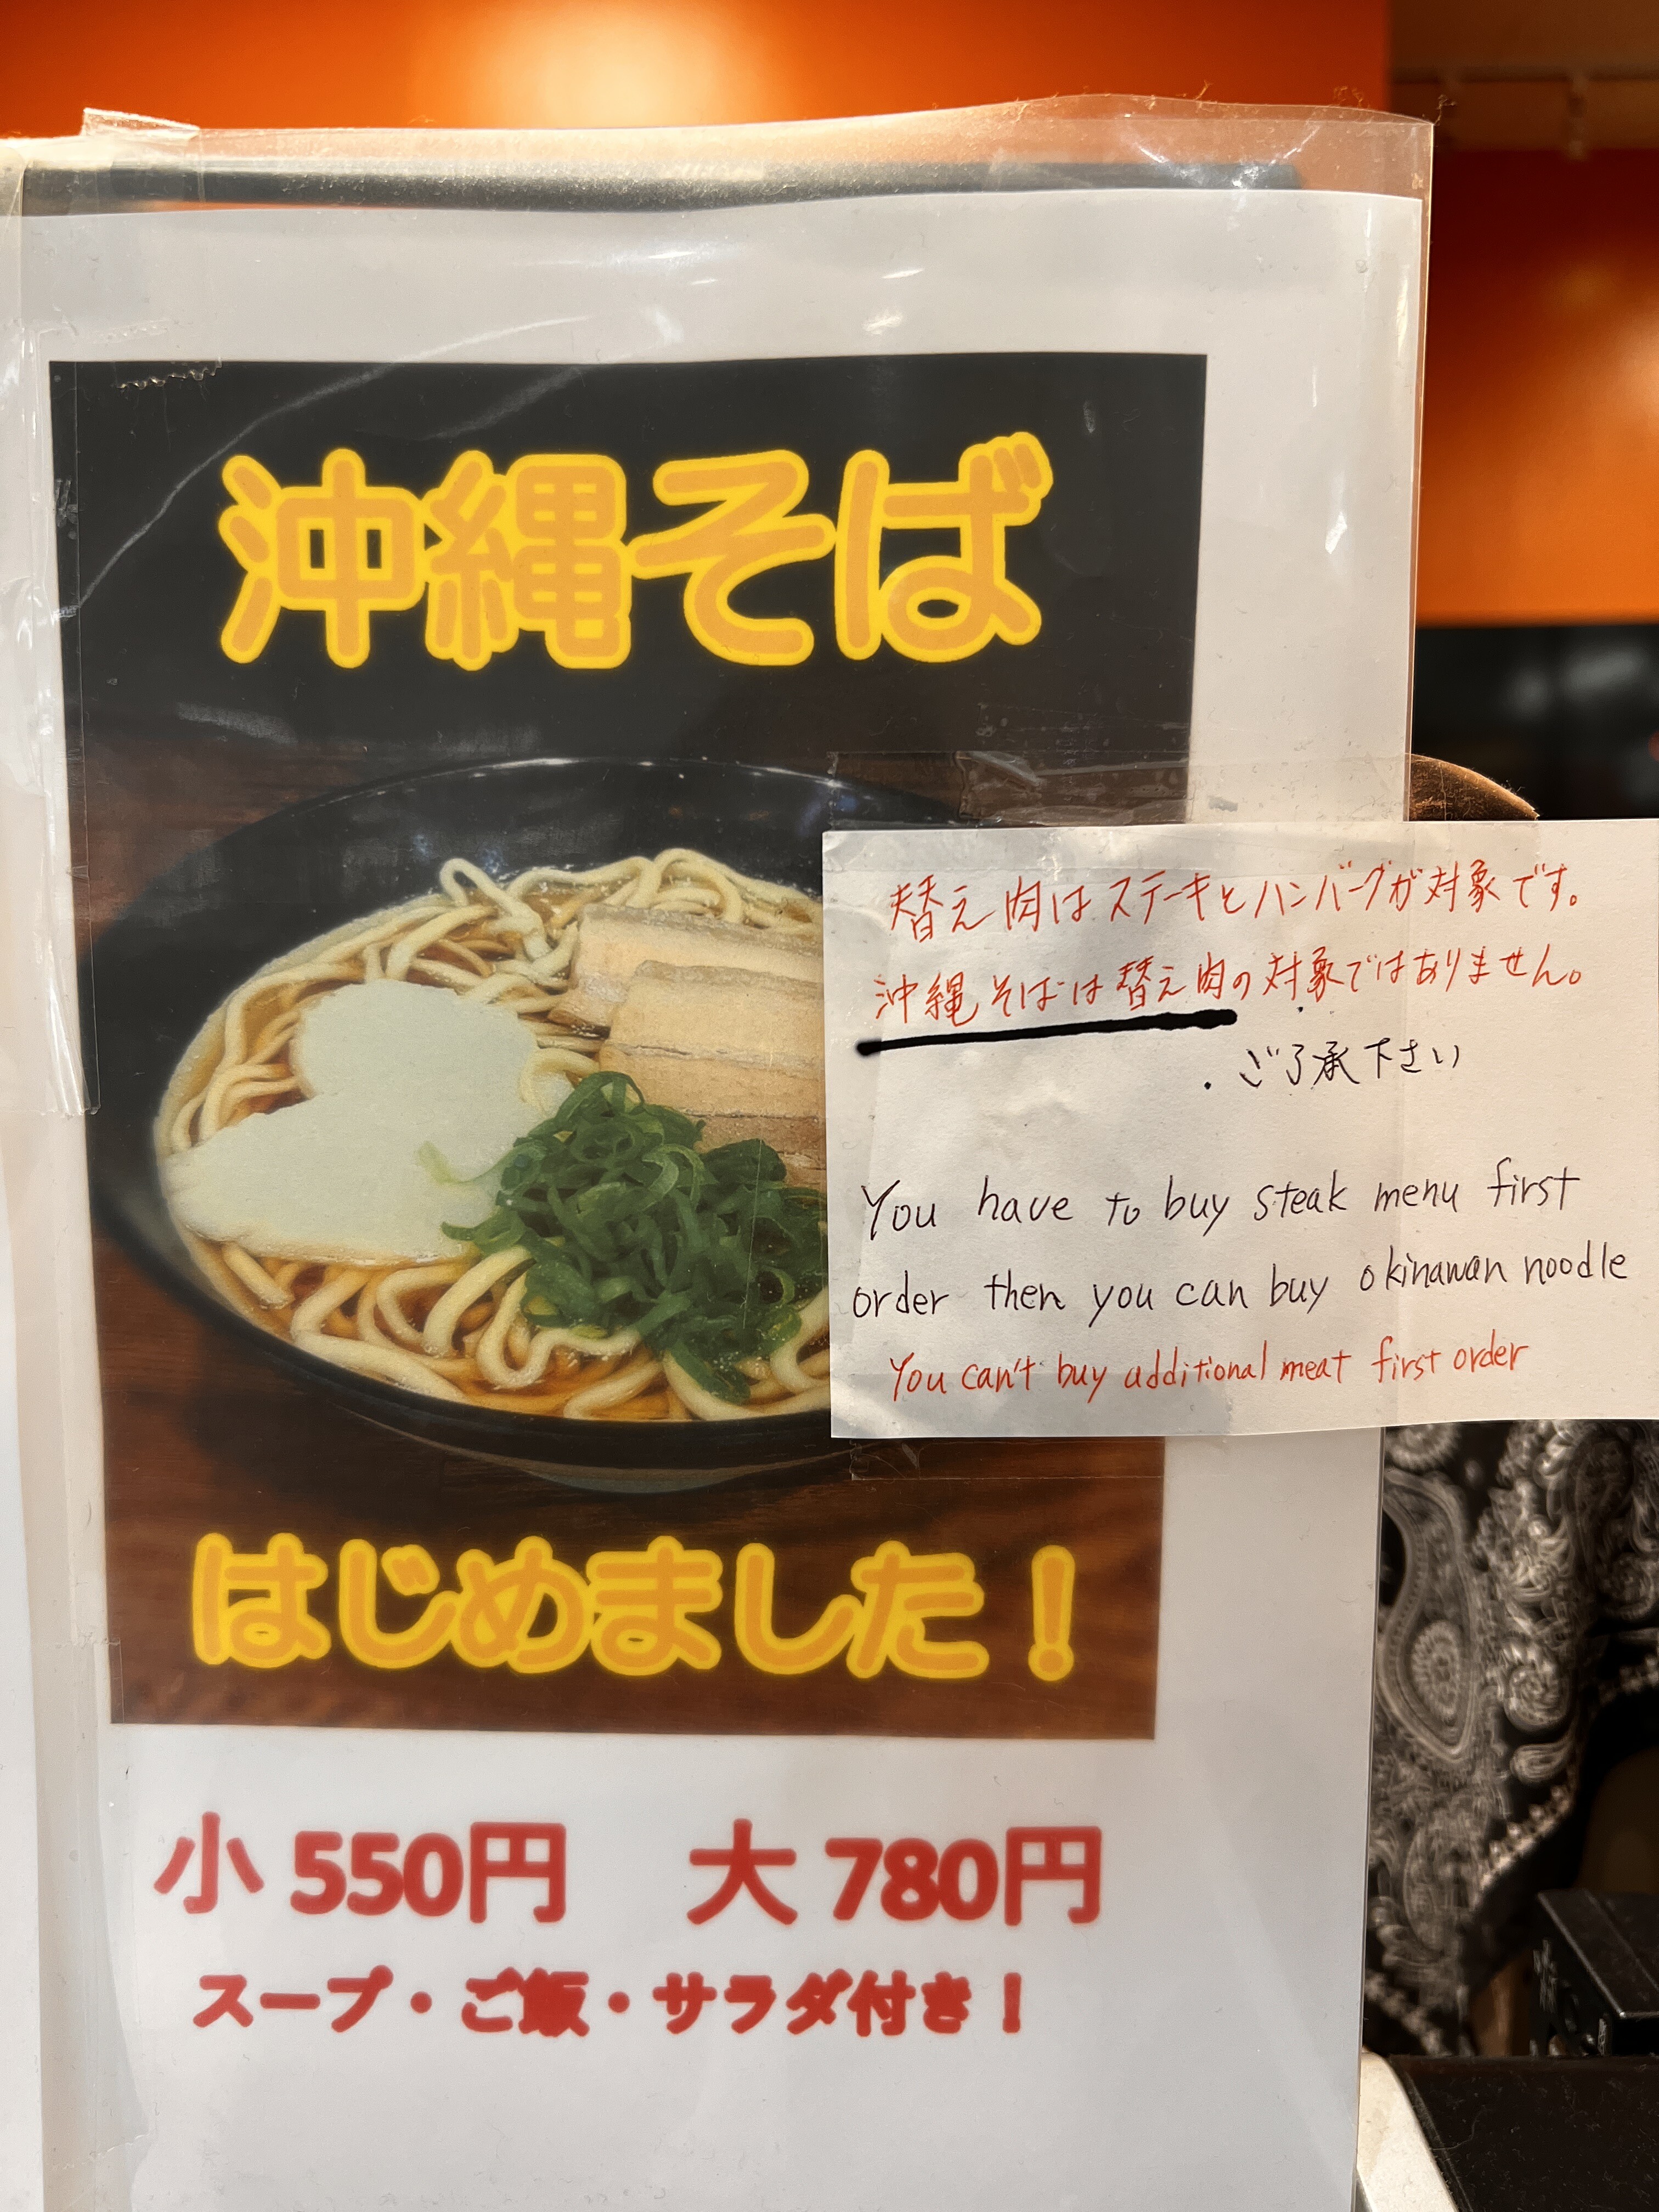 沖縄そば
替え肉はステーキとハンバーグが対象です。
沖縄そばは替え肉の対象ではありません。
・ご了承下さい
You have to buy steak menu first
order then you can buy okinawan noodle
You can't buy additional meat first order
はじめました！
小 550円 大 780円
スープ・ご飯・サラダ付き！